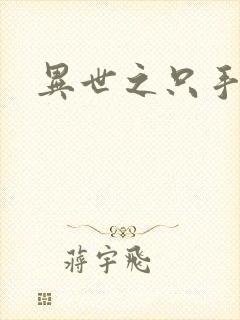 異世之只手
蔣宇飛